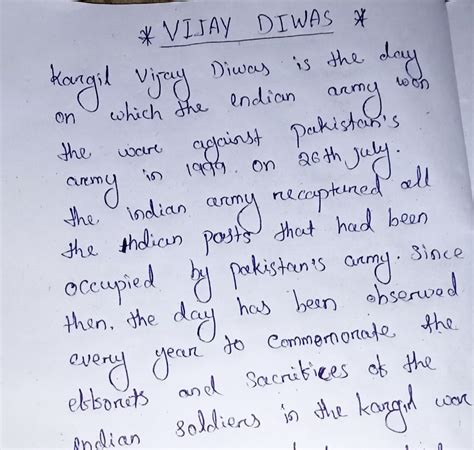 * VIJAY DIWAS *
Kargil Vijay Diwas is the day
on which the endian army won
the ware against pakistan's
army in 1999. on 26th July.
the indian army recaptured all
the Indian posts that had been
occupied by pakistan's army. Since
then, the day has been observed
every year to commemorate the
efforets and sacrifices of the
endian soldiers in the kargil war